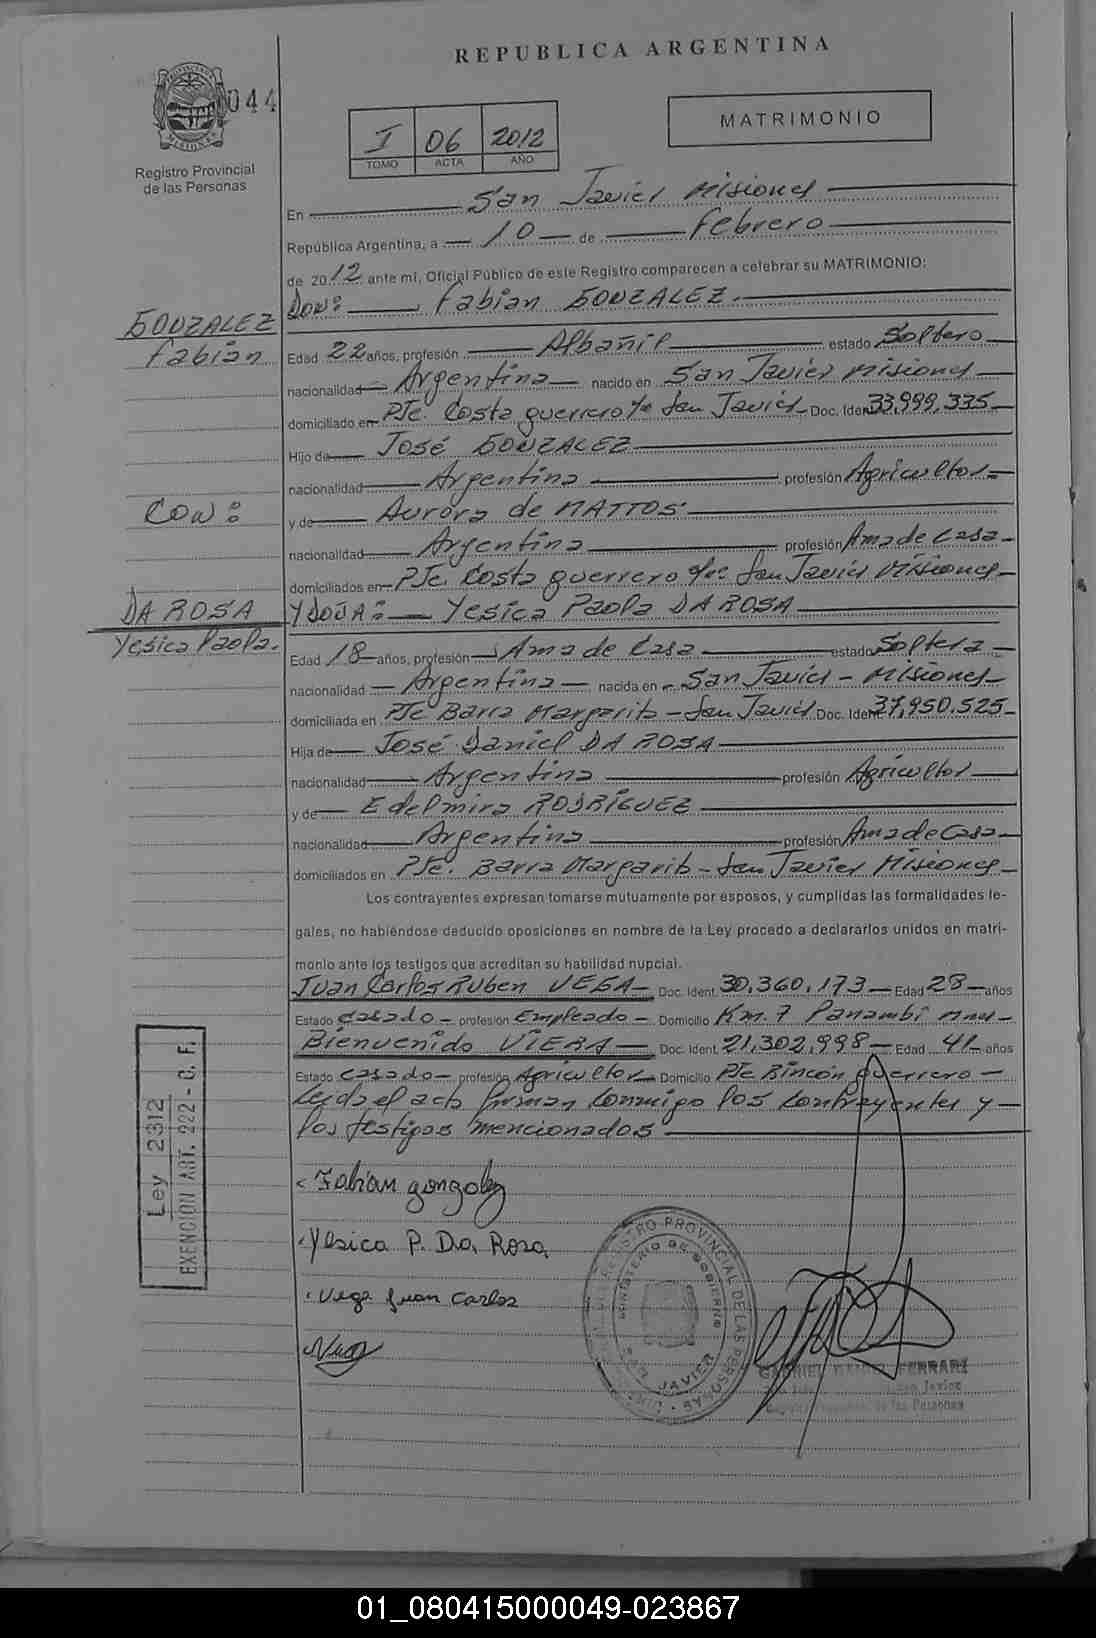 REPUBLICA ARGENTINA
PROVINCIA DE MISIONES
044
Registro Provincial
de las Personas
I 06 2012
TOMO ACTA AÑO
MATRIMONIO
En San Javier Misiones
República Argentina, a 10 de febrero
de 2012 ante mi, Oficial Público de este Registro comparecen a celebrar su MATRIMONIO:
DON: Fabian GONZALEZ.
GONZALEZ
Fabián
Edad 22 años, profesión Albañil estado Soltero
nacionalidad Argentina nacido en San Javier Misiones
domiciliado en Pje. Costa guerrero San Javier Doc. Iden 33,999,335
Hijo de José GONZALEZ
nacionalidad Argentina profesión Agricultor
CON:
y de Aurora de MATTOS
nacionalidad Argentina profesión Ama de Casa
domiciliados en Pje. Costa guerrero San Javier Misiones
DA ROSA
Yesica Paola.
Y DOÑA: Yesica Paola DA ROSA
Edad 18 años, profesión Ama de Casa estado Soltera
nacionalidad Argentina nacida en San Javier - Misiones
domiciliada en Pje Barra Margarita - San Javier Doc. Ident 37,950.525
Hija de José Daniel DA ROSA
nacionalidad Argentina profesión Agricultor
y de Edelmira RODRIGUEZ
nacionalidad Argentina profesión Ama de Casa
domiciliados en Pje. Barra Margarita - San Javier Misiones
Los contrayentes expresan tomarse mutuamente por esposos, y cumplidas las formalidades le-
gales, no habiéndose deducido oposiciones en nombre de la Ley procedo a declararlos unidos en matri-
monio ante los testigos que acreditan su habilidad nupcial.
Juan Carlos Ruben VEGA Doc. Ident. 30,360,173 Edad 28 años
Estado casado profesión Empleado Domicilio Km. 7 Panambí
Bienvenido VIERA Doc. Ident. 21,302,998 Edad 41 años
Estado casado profesión Agricultor Domicilio Pje Rincón guerrero
Leída el acta firman conmigo los contrayentes y
los testigos mencionados
Ley 2312
EXENCION ART. 222 - C. F.
Fabian gonzalez
Yesica P. Da Rosa
Vega Juan Carlos
REGISTRO PROVINCIAL DE LAS PERSONAS
MINISTERIO DE GOBIERNO
SAN JAVIER
GABRIEL FERRARI
San Javier
de las Personas
01_080415000049-023867